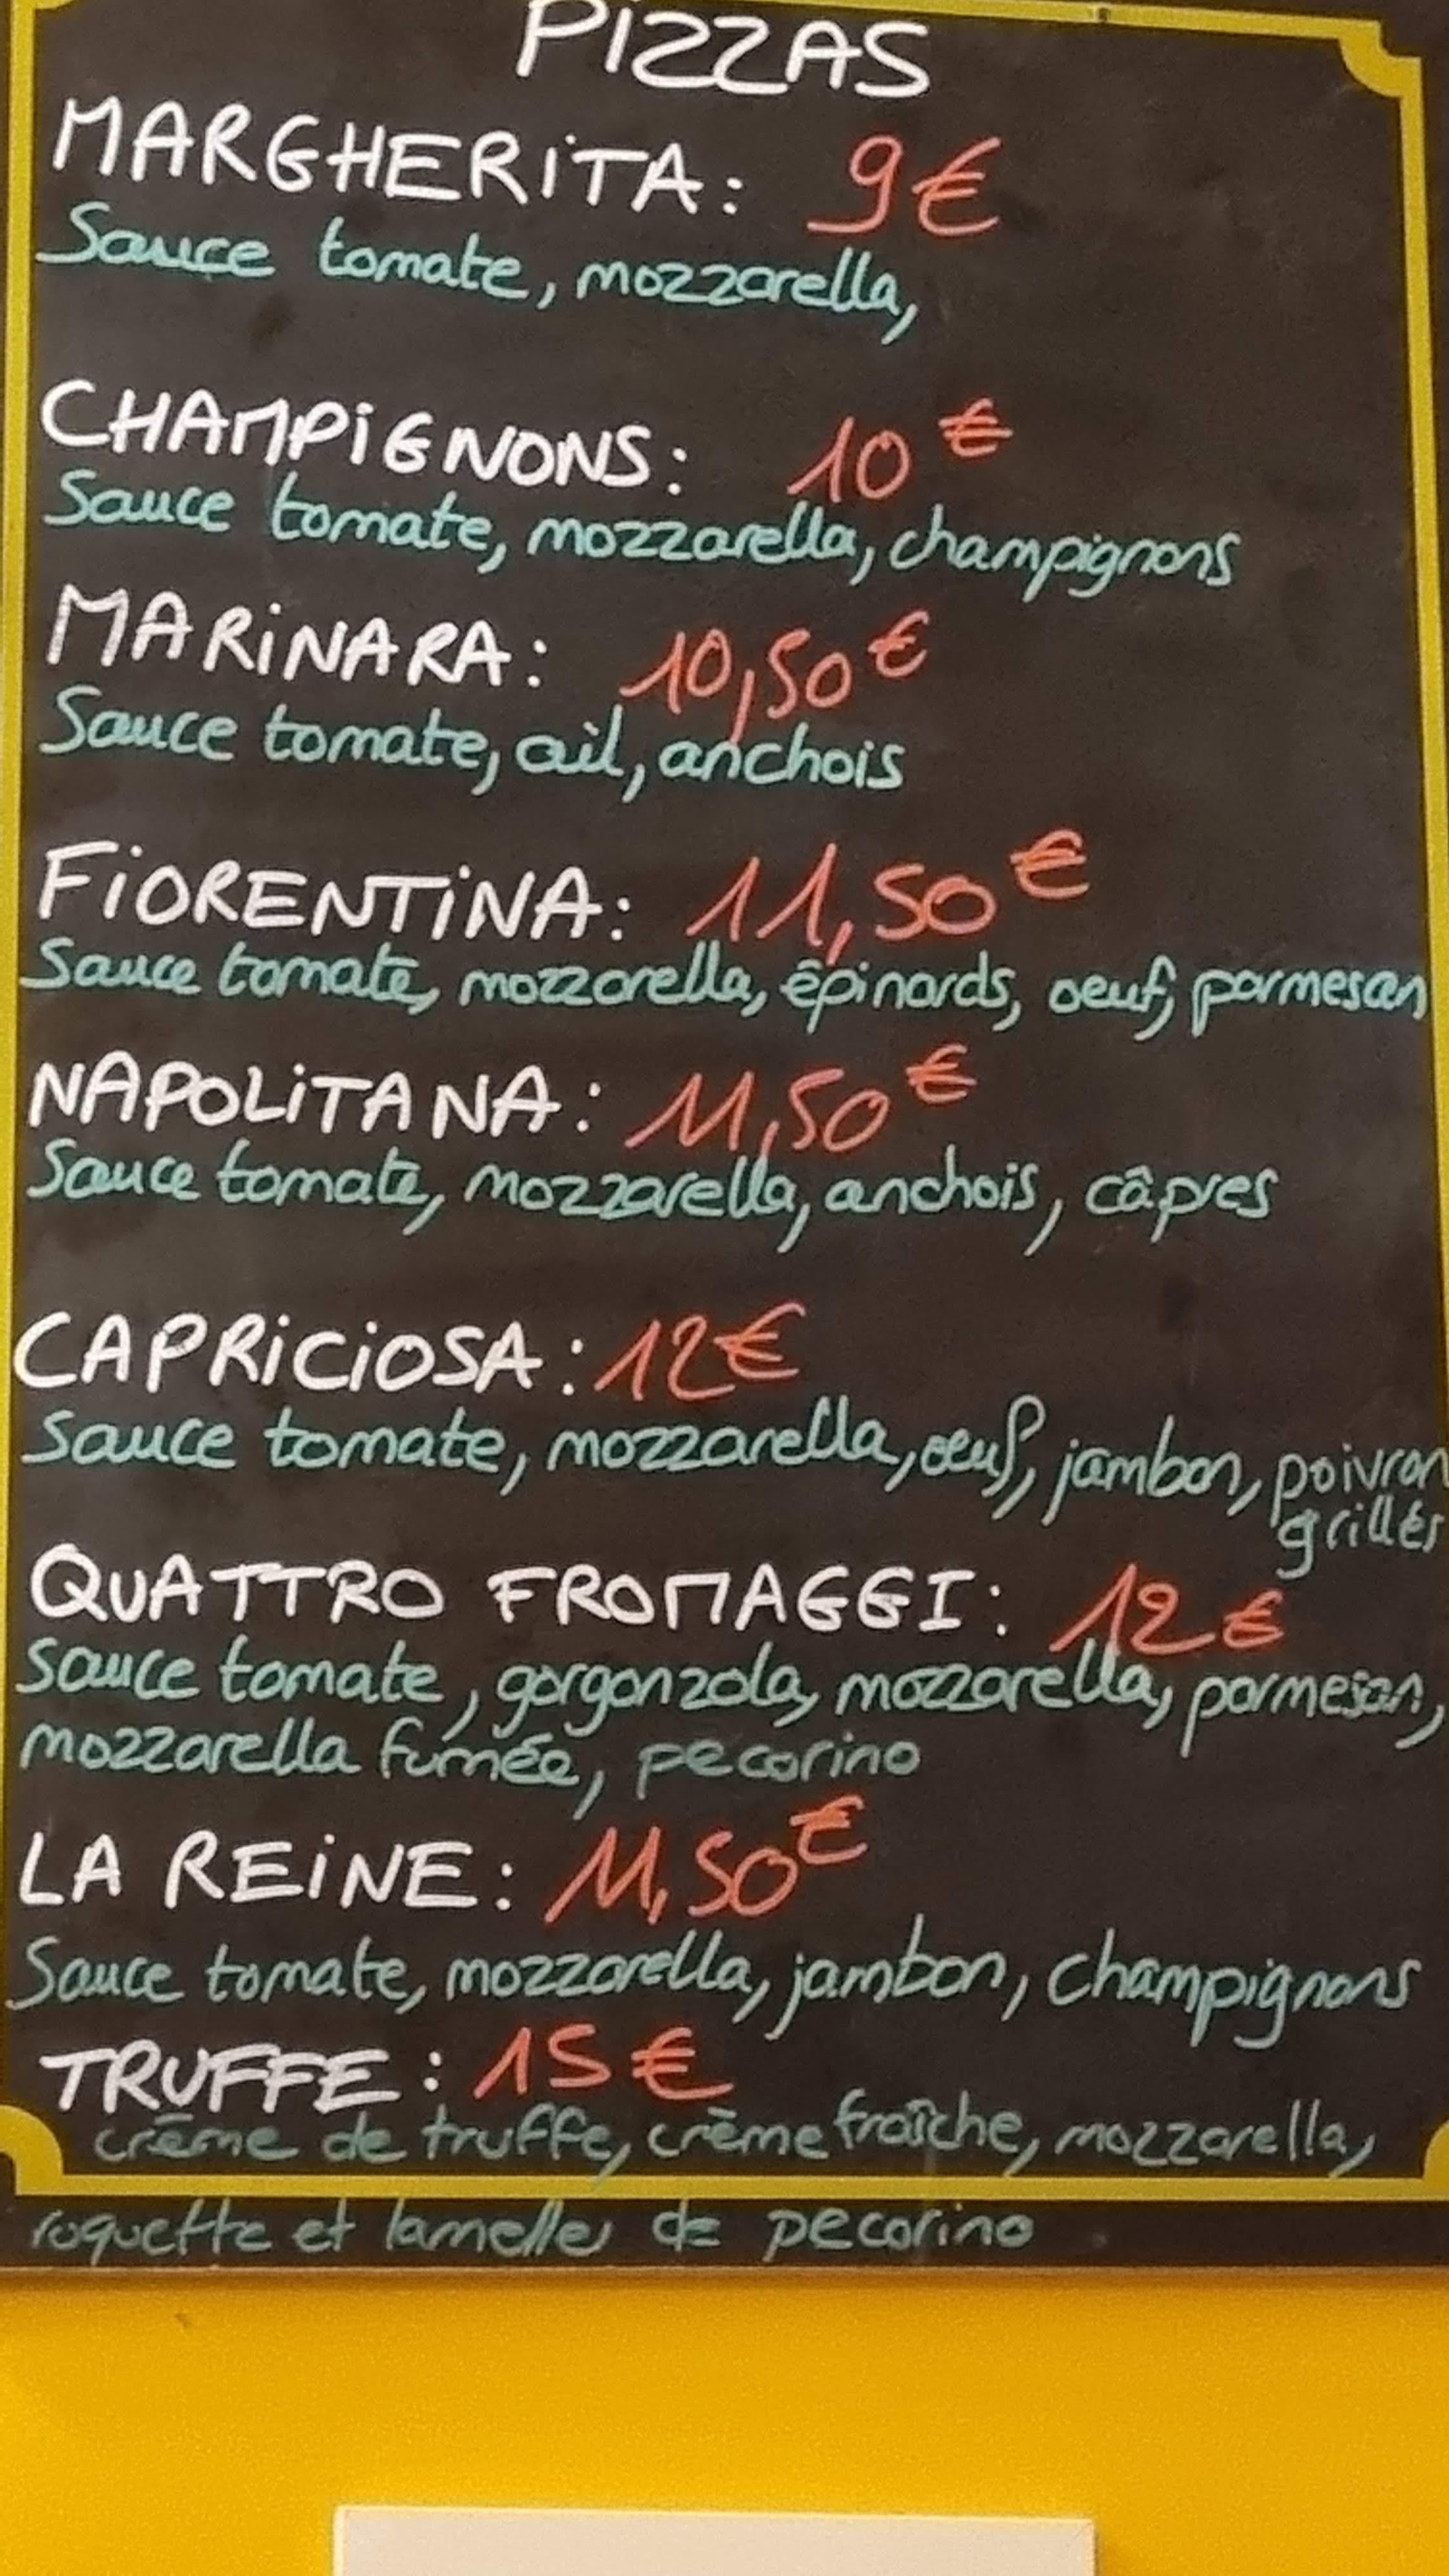 PIZZAS
MARGHERITA: 9€
Sauce tomate, mozzarella,
CHAMPIGNONS: 10€
Sauce tomate, mozzarella, champignons
MARINARA: 10,50€
Sauce tomate, ail, anchois
FIORENTINA: 11,50€
Sauce tomate, mozzarella, épinards, oeuf, parmesan
NAPOLITANA: 11,50€
Sauce tomate, mozzarella, anchois, câpres
CAPRICIOSA: 12€
Sauce tomate, mozzarella, oeuf, jambon, poivron
grillés
QUATTRO FROMAGGI: 12€
Sauce tomate, gorgonzola, mozzarella, parmesan,
mozzarella fumée, pecorino
LA REINE: 11,50€
Sauce tomate, mozzarella, jambon, champignons
TRUFFE: 15€
crème de truffe, crème fraîche, mozzarella,
roquette et lamelles de pecorino